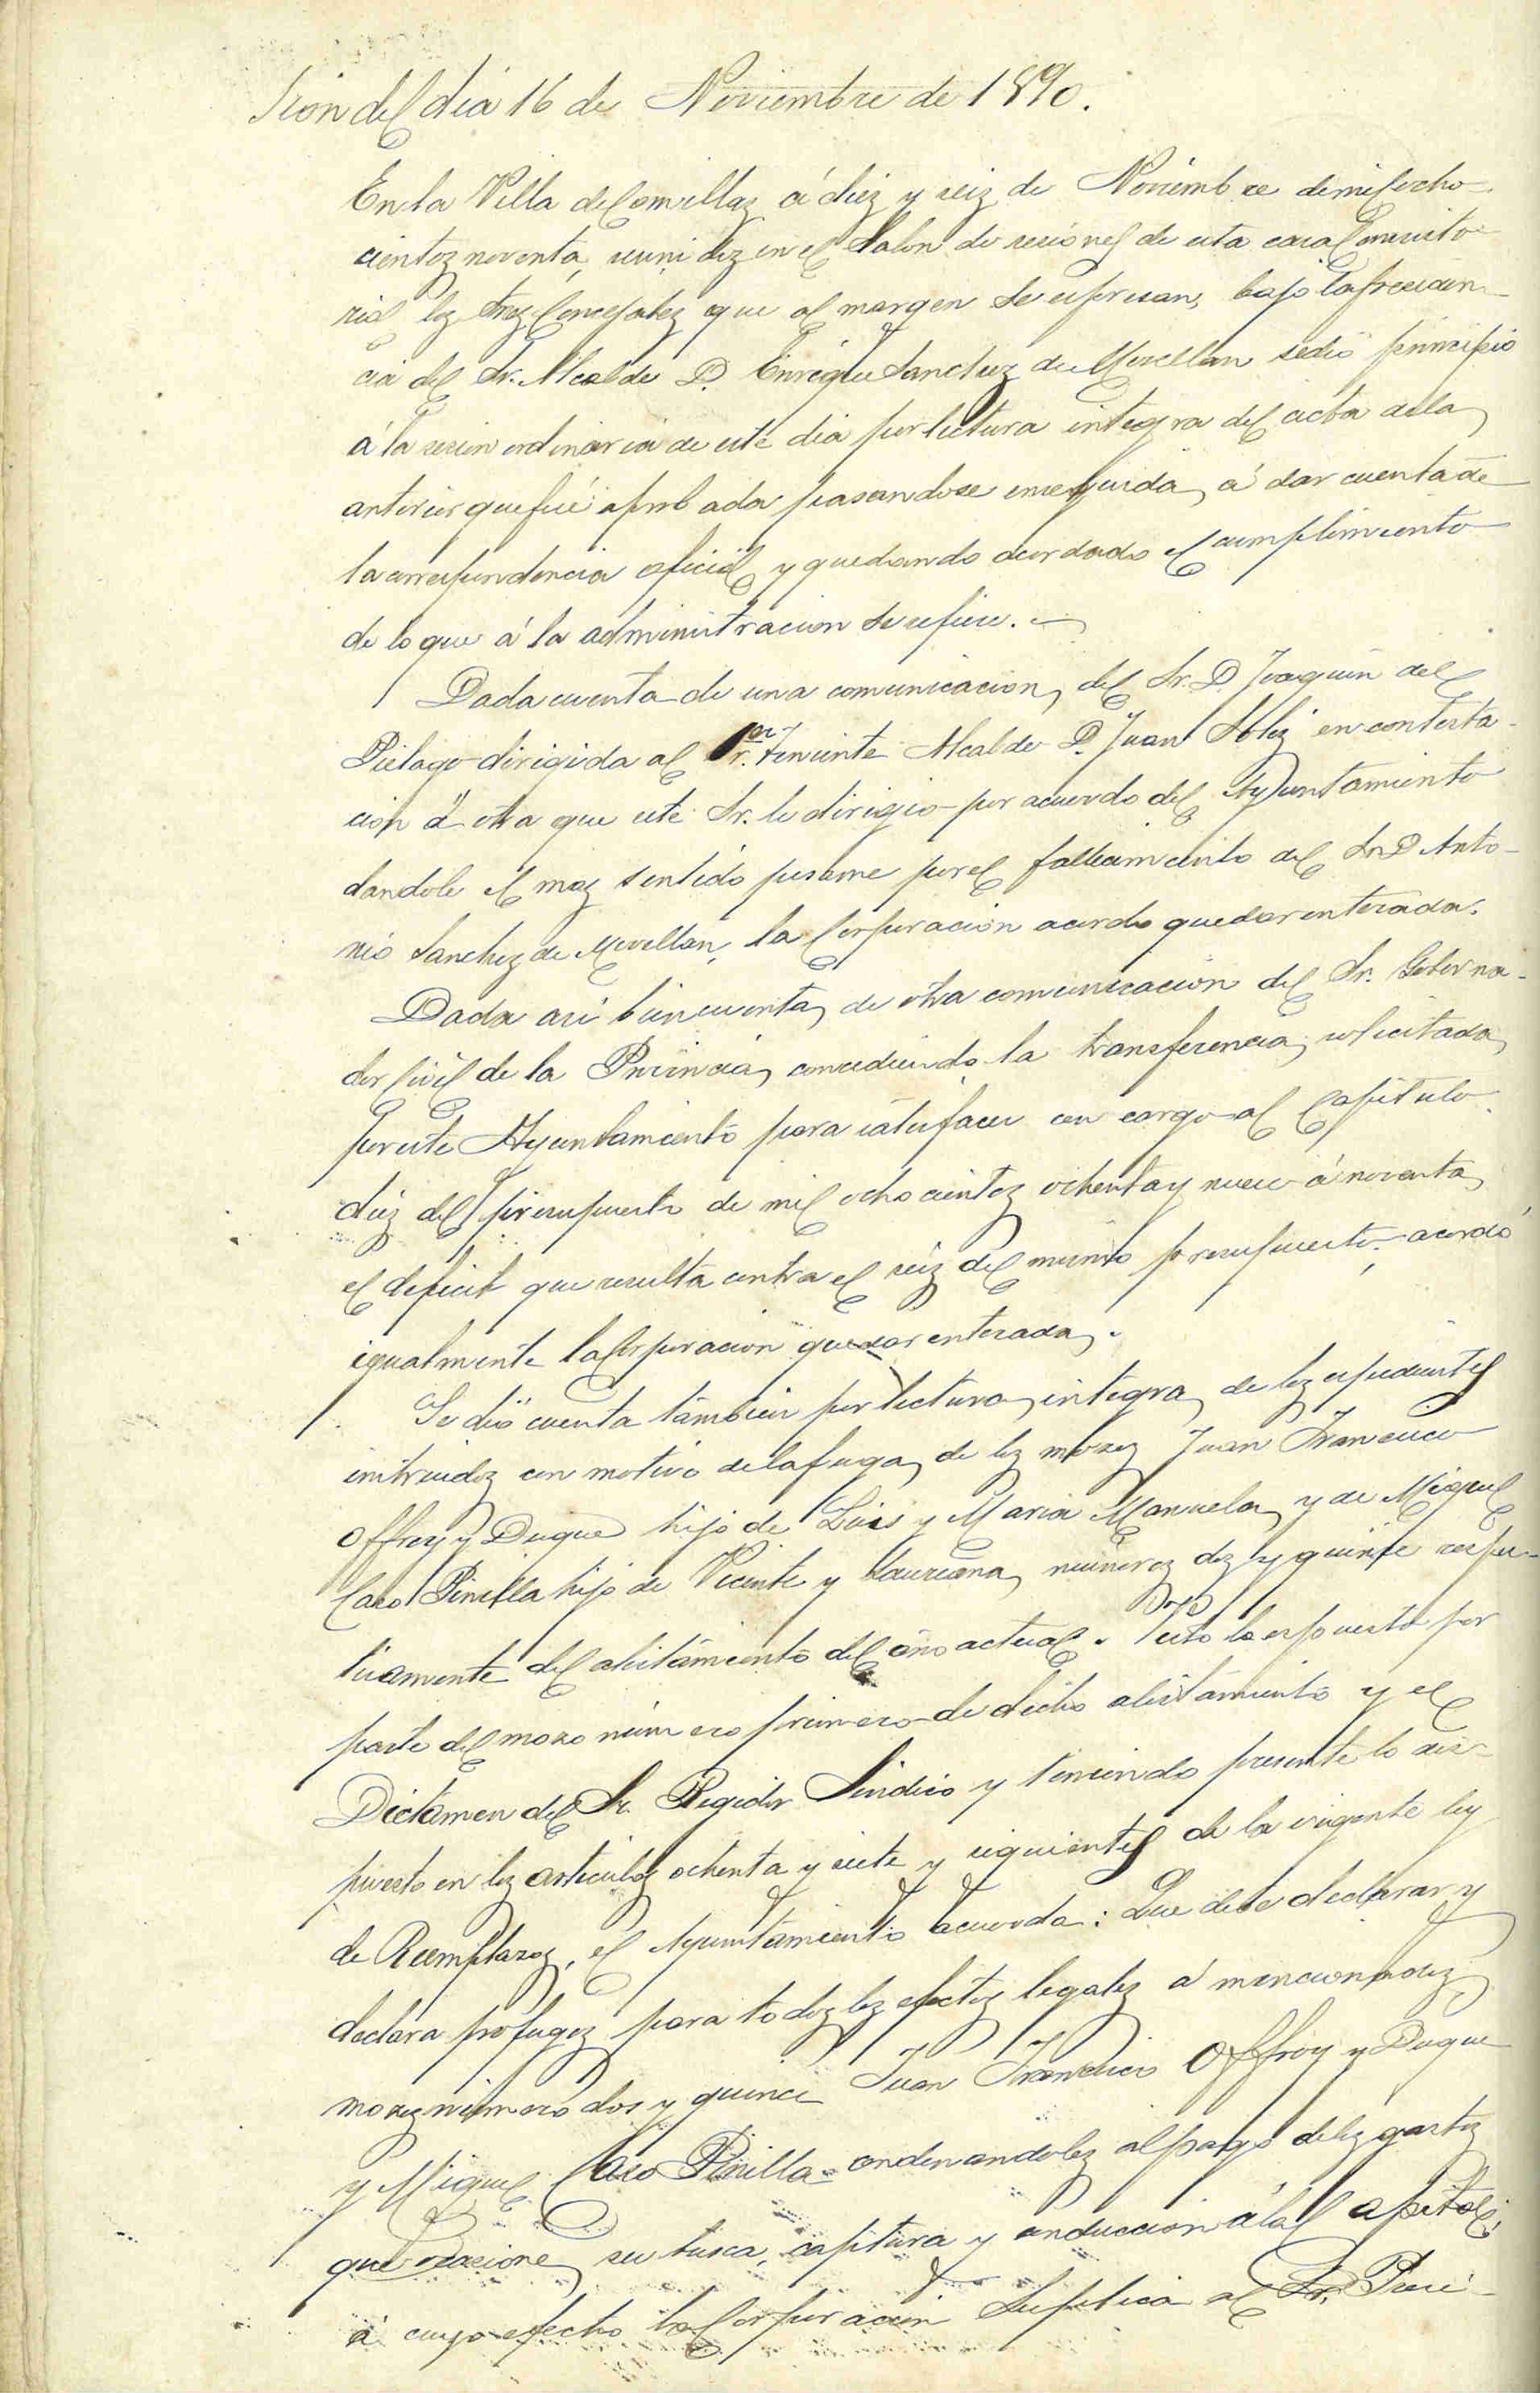 sion del dia 16 de Noviembre de 1890.
En la Villa de Comillas á diez y seis de Noviembre de mil ocho-
cientos noventa, reunidos en el Salon de sesiones de esta casa Consisto-
rial los tres Concejales que al margen se espresan, bajo la presiden-
cia del Sr. Alcalde D. Enrique Sanchez de Movellan se dió principio
á la sesion ordinaria de este dia por lectura integra del acta de la
anterior que fué aprobada pasandose enseguida á dar cuenta de
la correspondencia oficial y quedando acordado el cumplimiento
de lo que á la administracion se refiere.
Dada cuenta de una comunicacion del Sr. D. Joaquin del
Pielago dirigida al 1er Teniente Alcalde D. Juan Solis en contesta-
cion á otra que este Sr. le dirigió por acuerdo del Ayuntamiento
dandole el mas sentido pesame por el fallecimiento del Sr. D. Anto-
nio Sanchez de Movellan, la Corporacion acordó quedar enterada.
Dada asi bien cuenta de otra comunicacion del Sr. Goberna-
dor Civil de la Provincia, concediendo la transferencia solicitada
por este Ayuntamiento para satisfacer con cargo al Capitulo
diez del presupuesto de mil ochocientos ochenta y nueve á noventa
el deficit que resulta contra el seis del mismo presupuesto, acordó
igualmente la Corporacion quedar enterada.
Se dió cuenta tambien por lectura integra de los espedientes
instruidos con motivo de la fuga de los mozos Juan Francisco
Offroy y Duque hijo de Luis y Maria Manuela y de Miguel
Caso Pinilla hijo de Vicente y Laureana, números dos y quince respec-
tivamente del alistamiento del año actual. Visto lo espuesto por
parte del mozo número primero de dicho alistamiento y el
Dictamen del Sr. Regidor Sindico y teniendo presente lo dis-
puesto en los articulos ochenta y siete y siguientes de la vigente ley
de Reemplazos, el Ayuntamiento acuerda: Que debe declarar y
declara prófugos para todos los efectos legales á mencionados
mozos número dos y quince Juan Francisco Offroy y Duque
y Miguel Caso Pinilla condenandoles al pago de los gastos
que ocasione su busca, captura y conduccion á la Capital,
á cuyo efecto la Corporacion suplica al Sr. Presi-